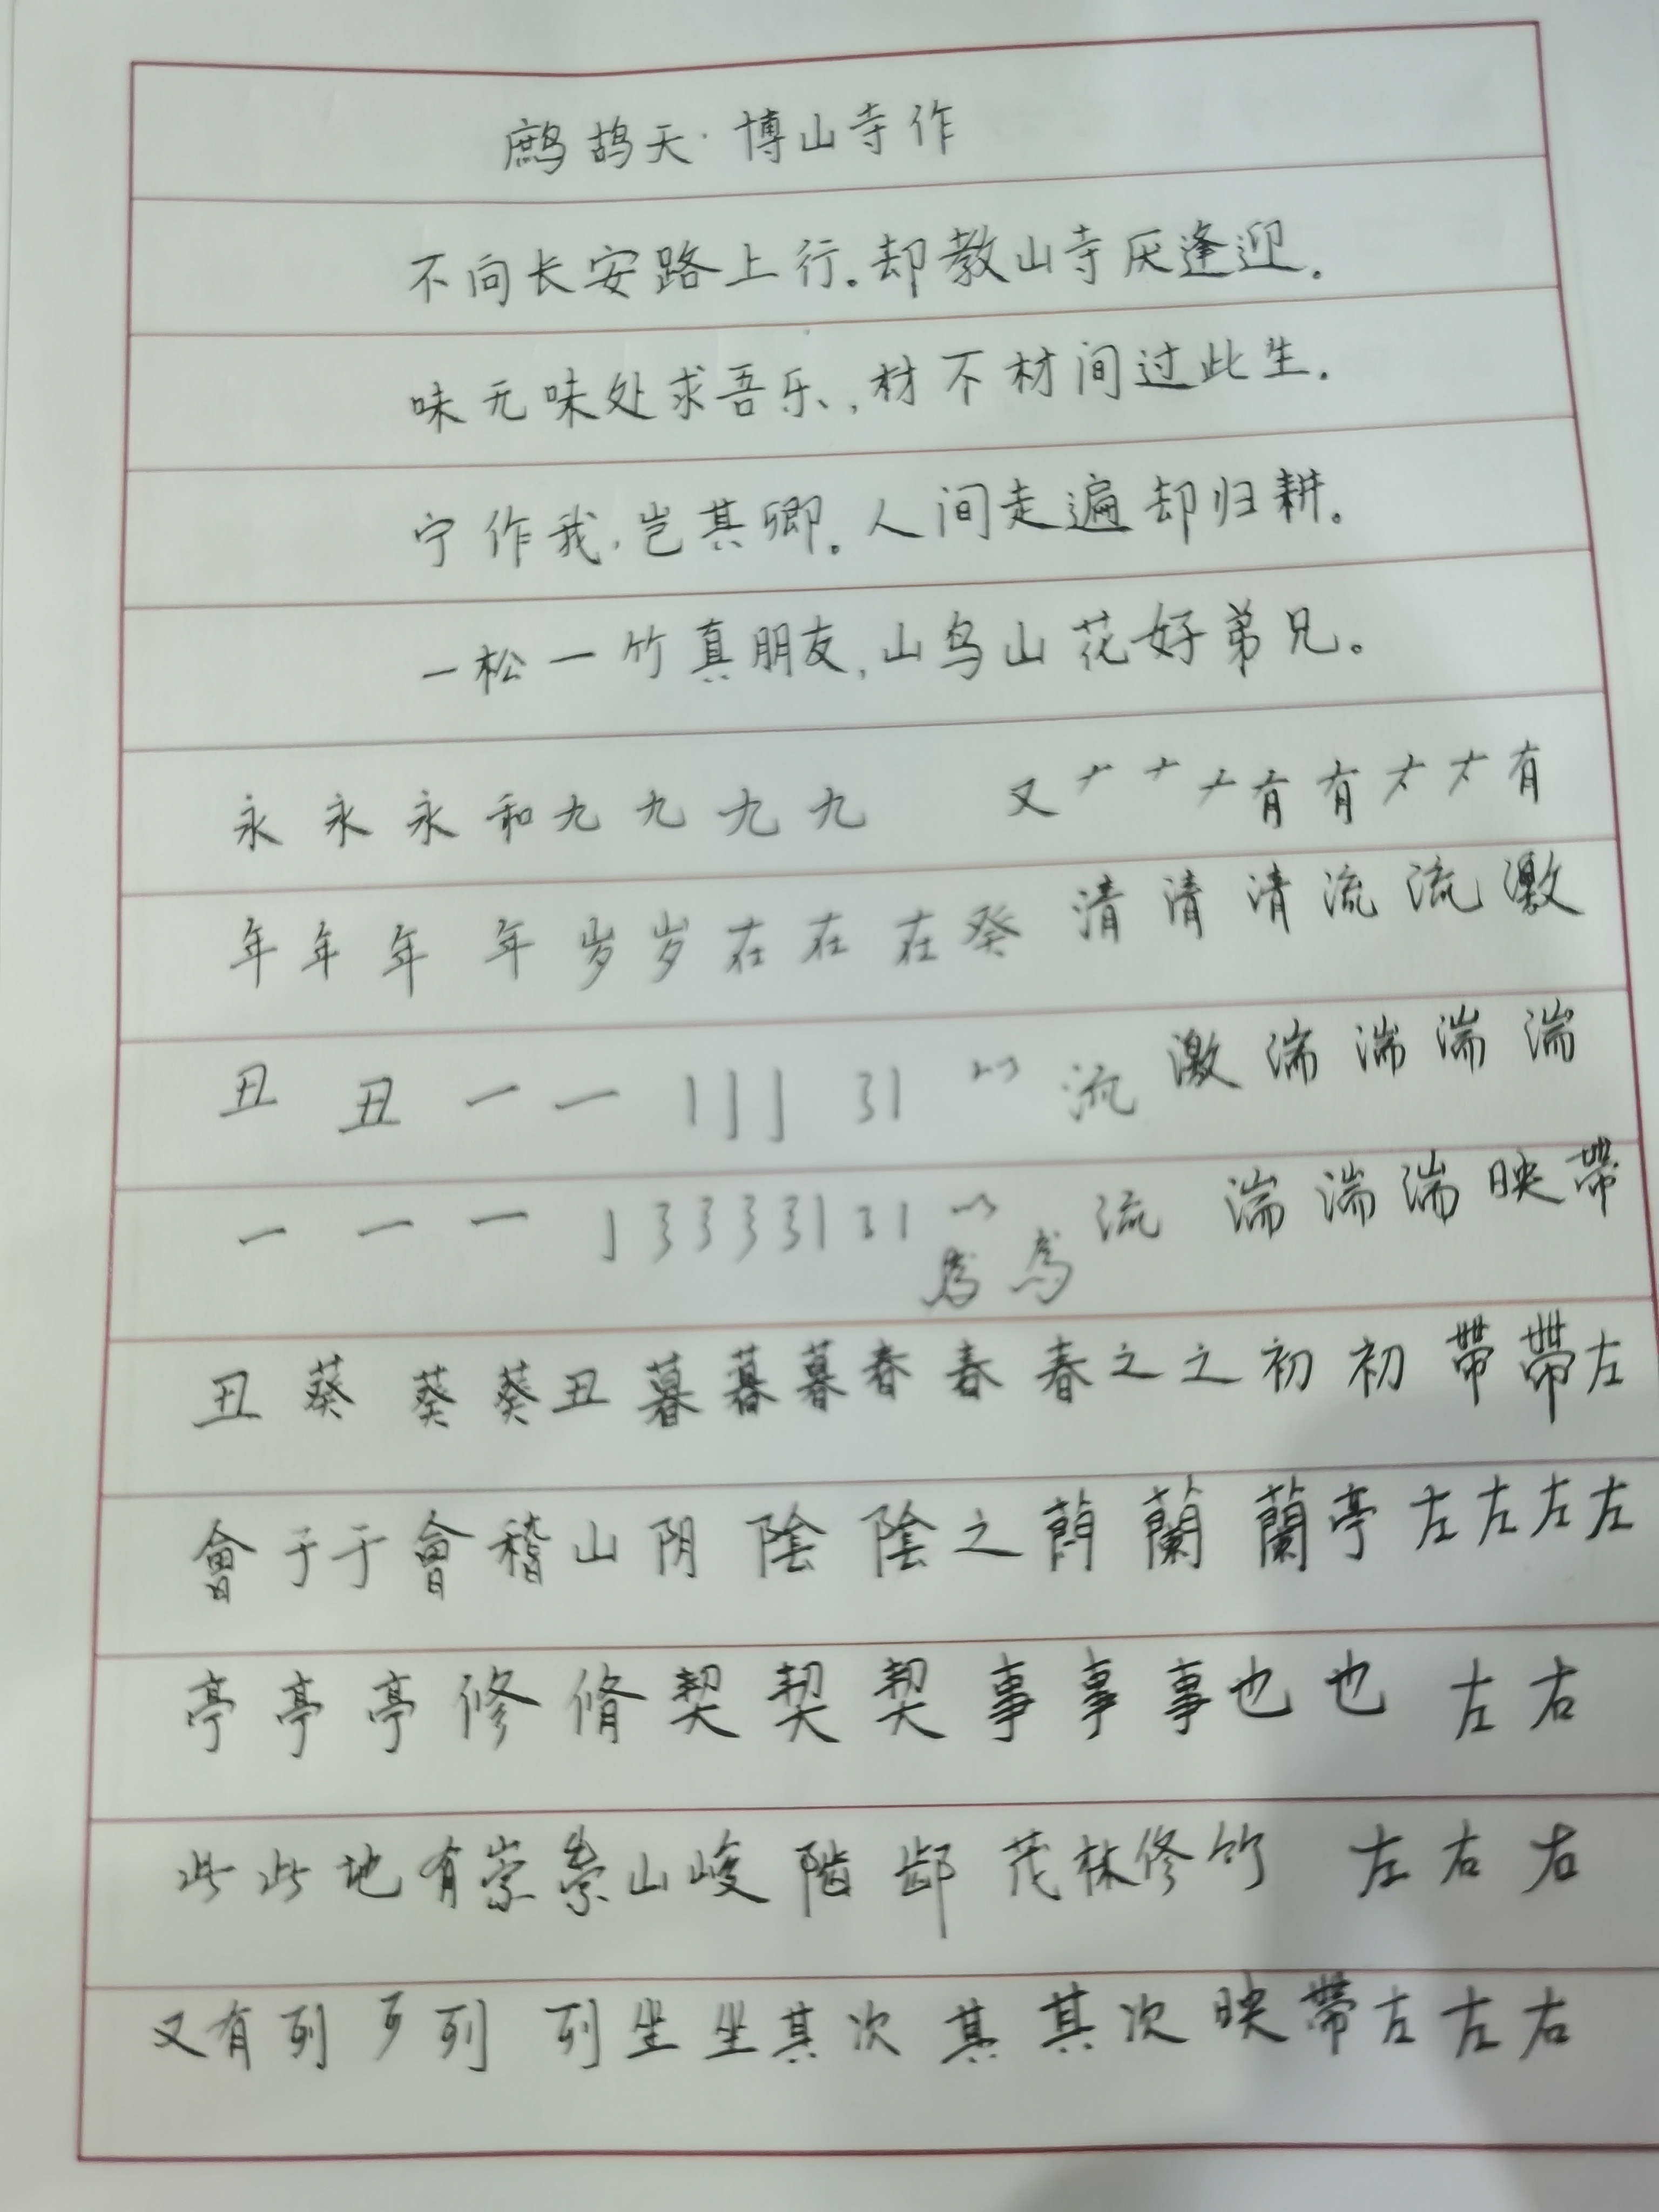 鹧鸪天·博山寺作
不向长安路上行。却教山寺厌逢迎。
味无味处求吾乐,材不材间过此生.
宁作我,岂其卿。人间走遍却归耕。
一松一竹真朋友,山鸟山花好弟兄。
永永永和九九九九 又 有有 有
年年年年岁岁在在在癸清清清流流激
丑丑一一 流激湍湍湍湍
一一一 流湍湍湍映带
丑葵葵葵丑暮暮暮春春春之之初初帶帶左
會于于會稽山阴陰陰之蘭蘭亭左左左左
亭亭亭修脩契契契事事事也也左右
此此地有崇崇山峻 茂林修竹左右右
又有列 列列坐坐其次其其次映帶左左右